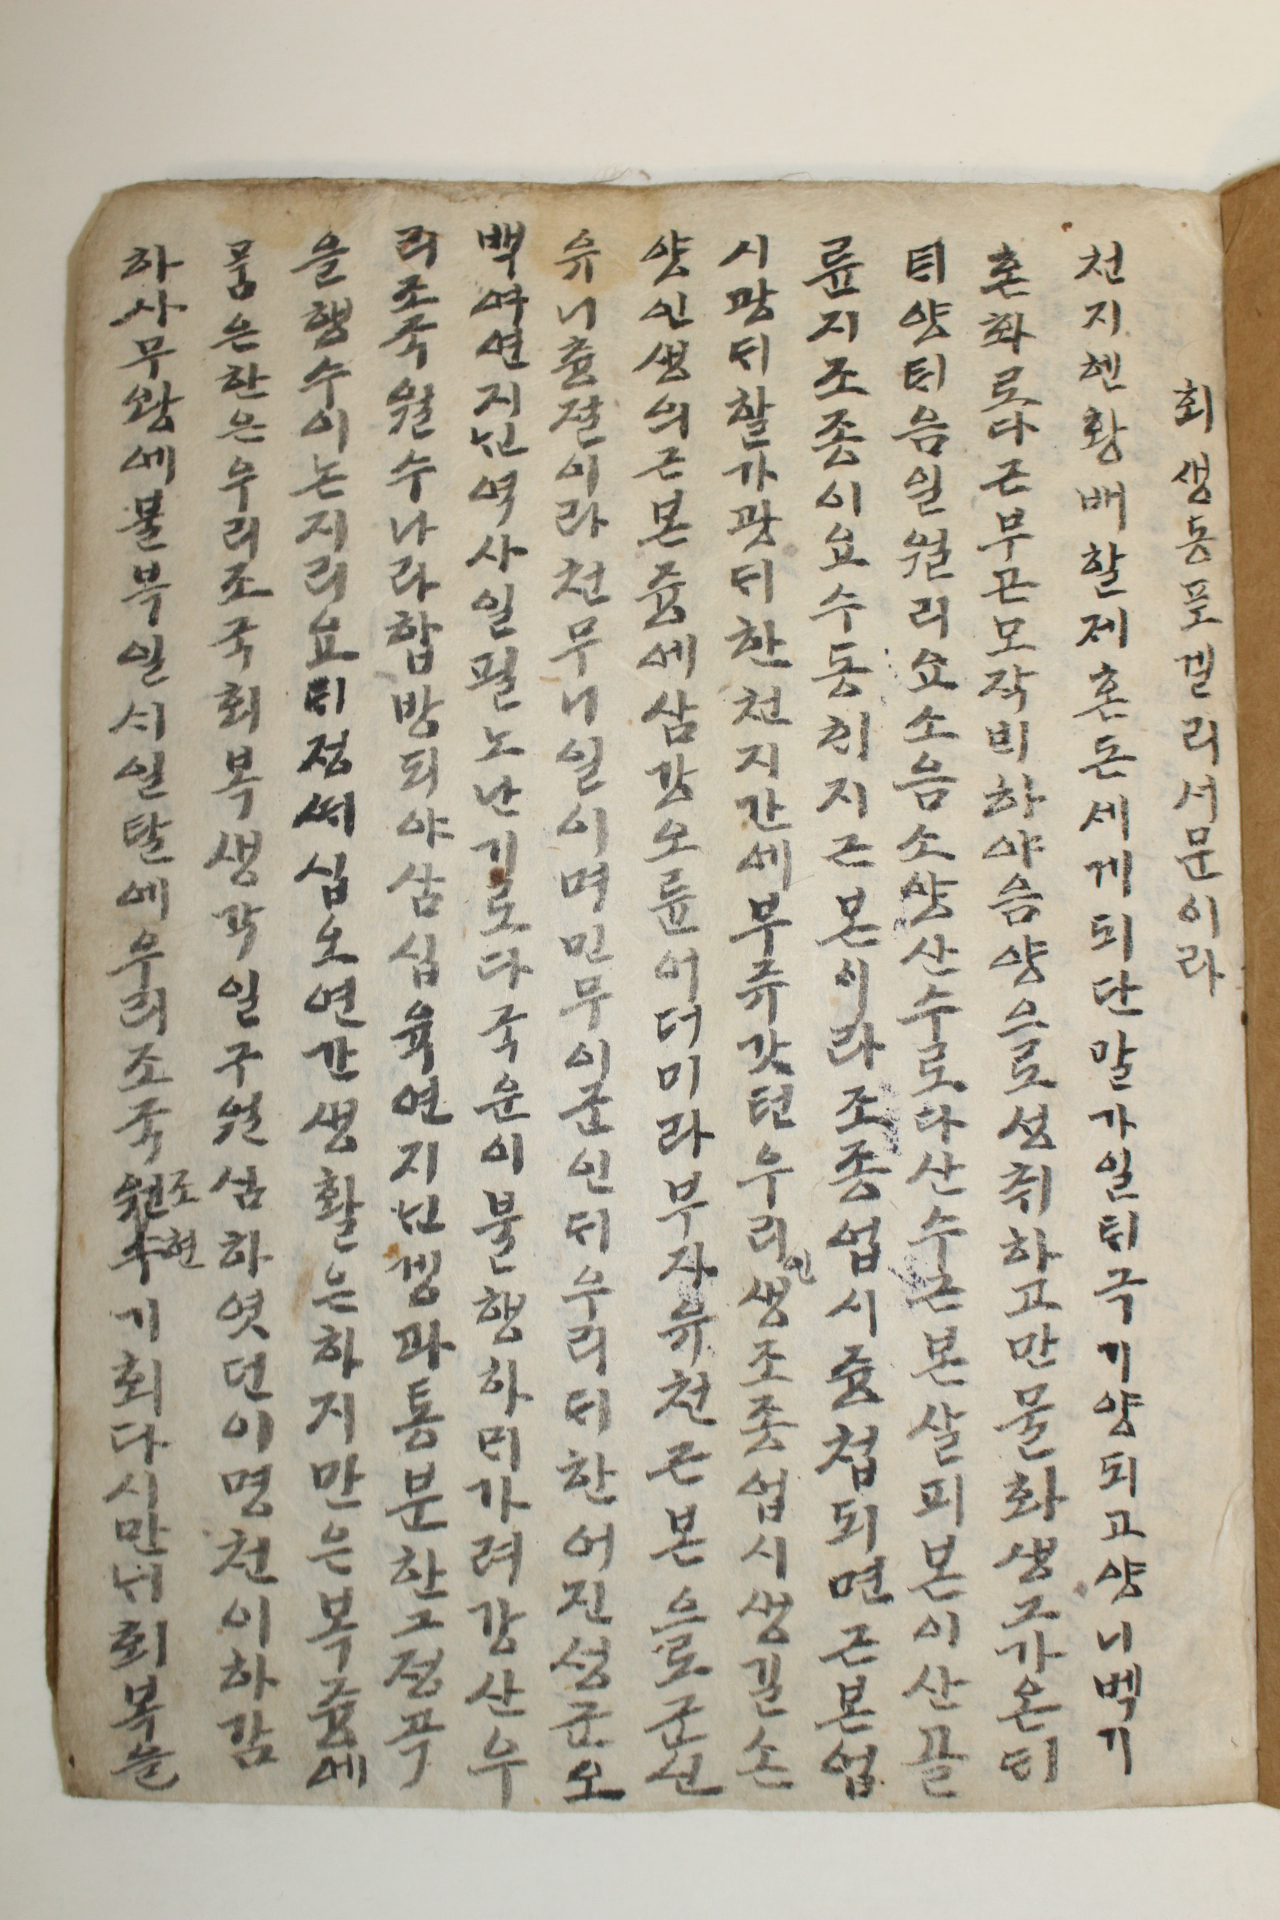 회생동포겔리서문이라
천지현황배할제혼돈세게되단말가일티극기양되고양니벡기
혼화로다근부곤모작비하야음양으로성취하고만물화생그가온티
티양티음일월리요소음소양산수로다산수근본살피본이산끌
륜지조종이요수동히지근본이라조종업시즁첩되면근본업
시광디할가광디한천지간에부쥬갓턴우리인생조종업시생길손
양인생의근본즁에삼강오륜어더미라부자유천근본으로군신
유니츙절이라천무니일이며민무이군인디우리디한어진성군오
백여연지닌역사일필노난기로다국운이불행하미가려강산우
리조국원수나라합방되야삼십육연지닌셍과통분한그정곡
을행수이논지리요티정씨십오연간생활은하지만은복즁에
품은한은우리조국회복생각일구월심하엿던이명천이하감
하사무왕에불복일시일탈에우리조국원조수현기회다시만니회복을